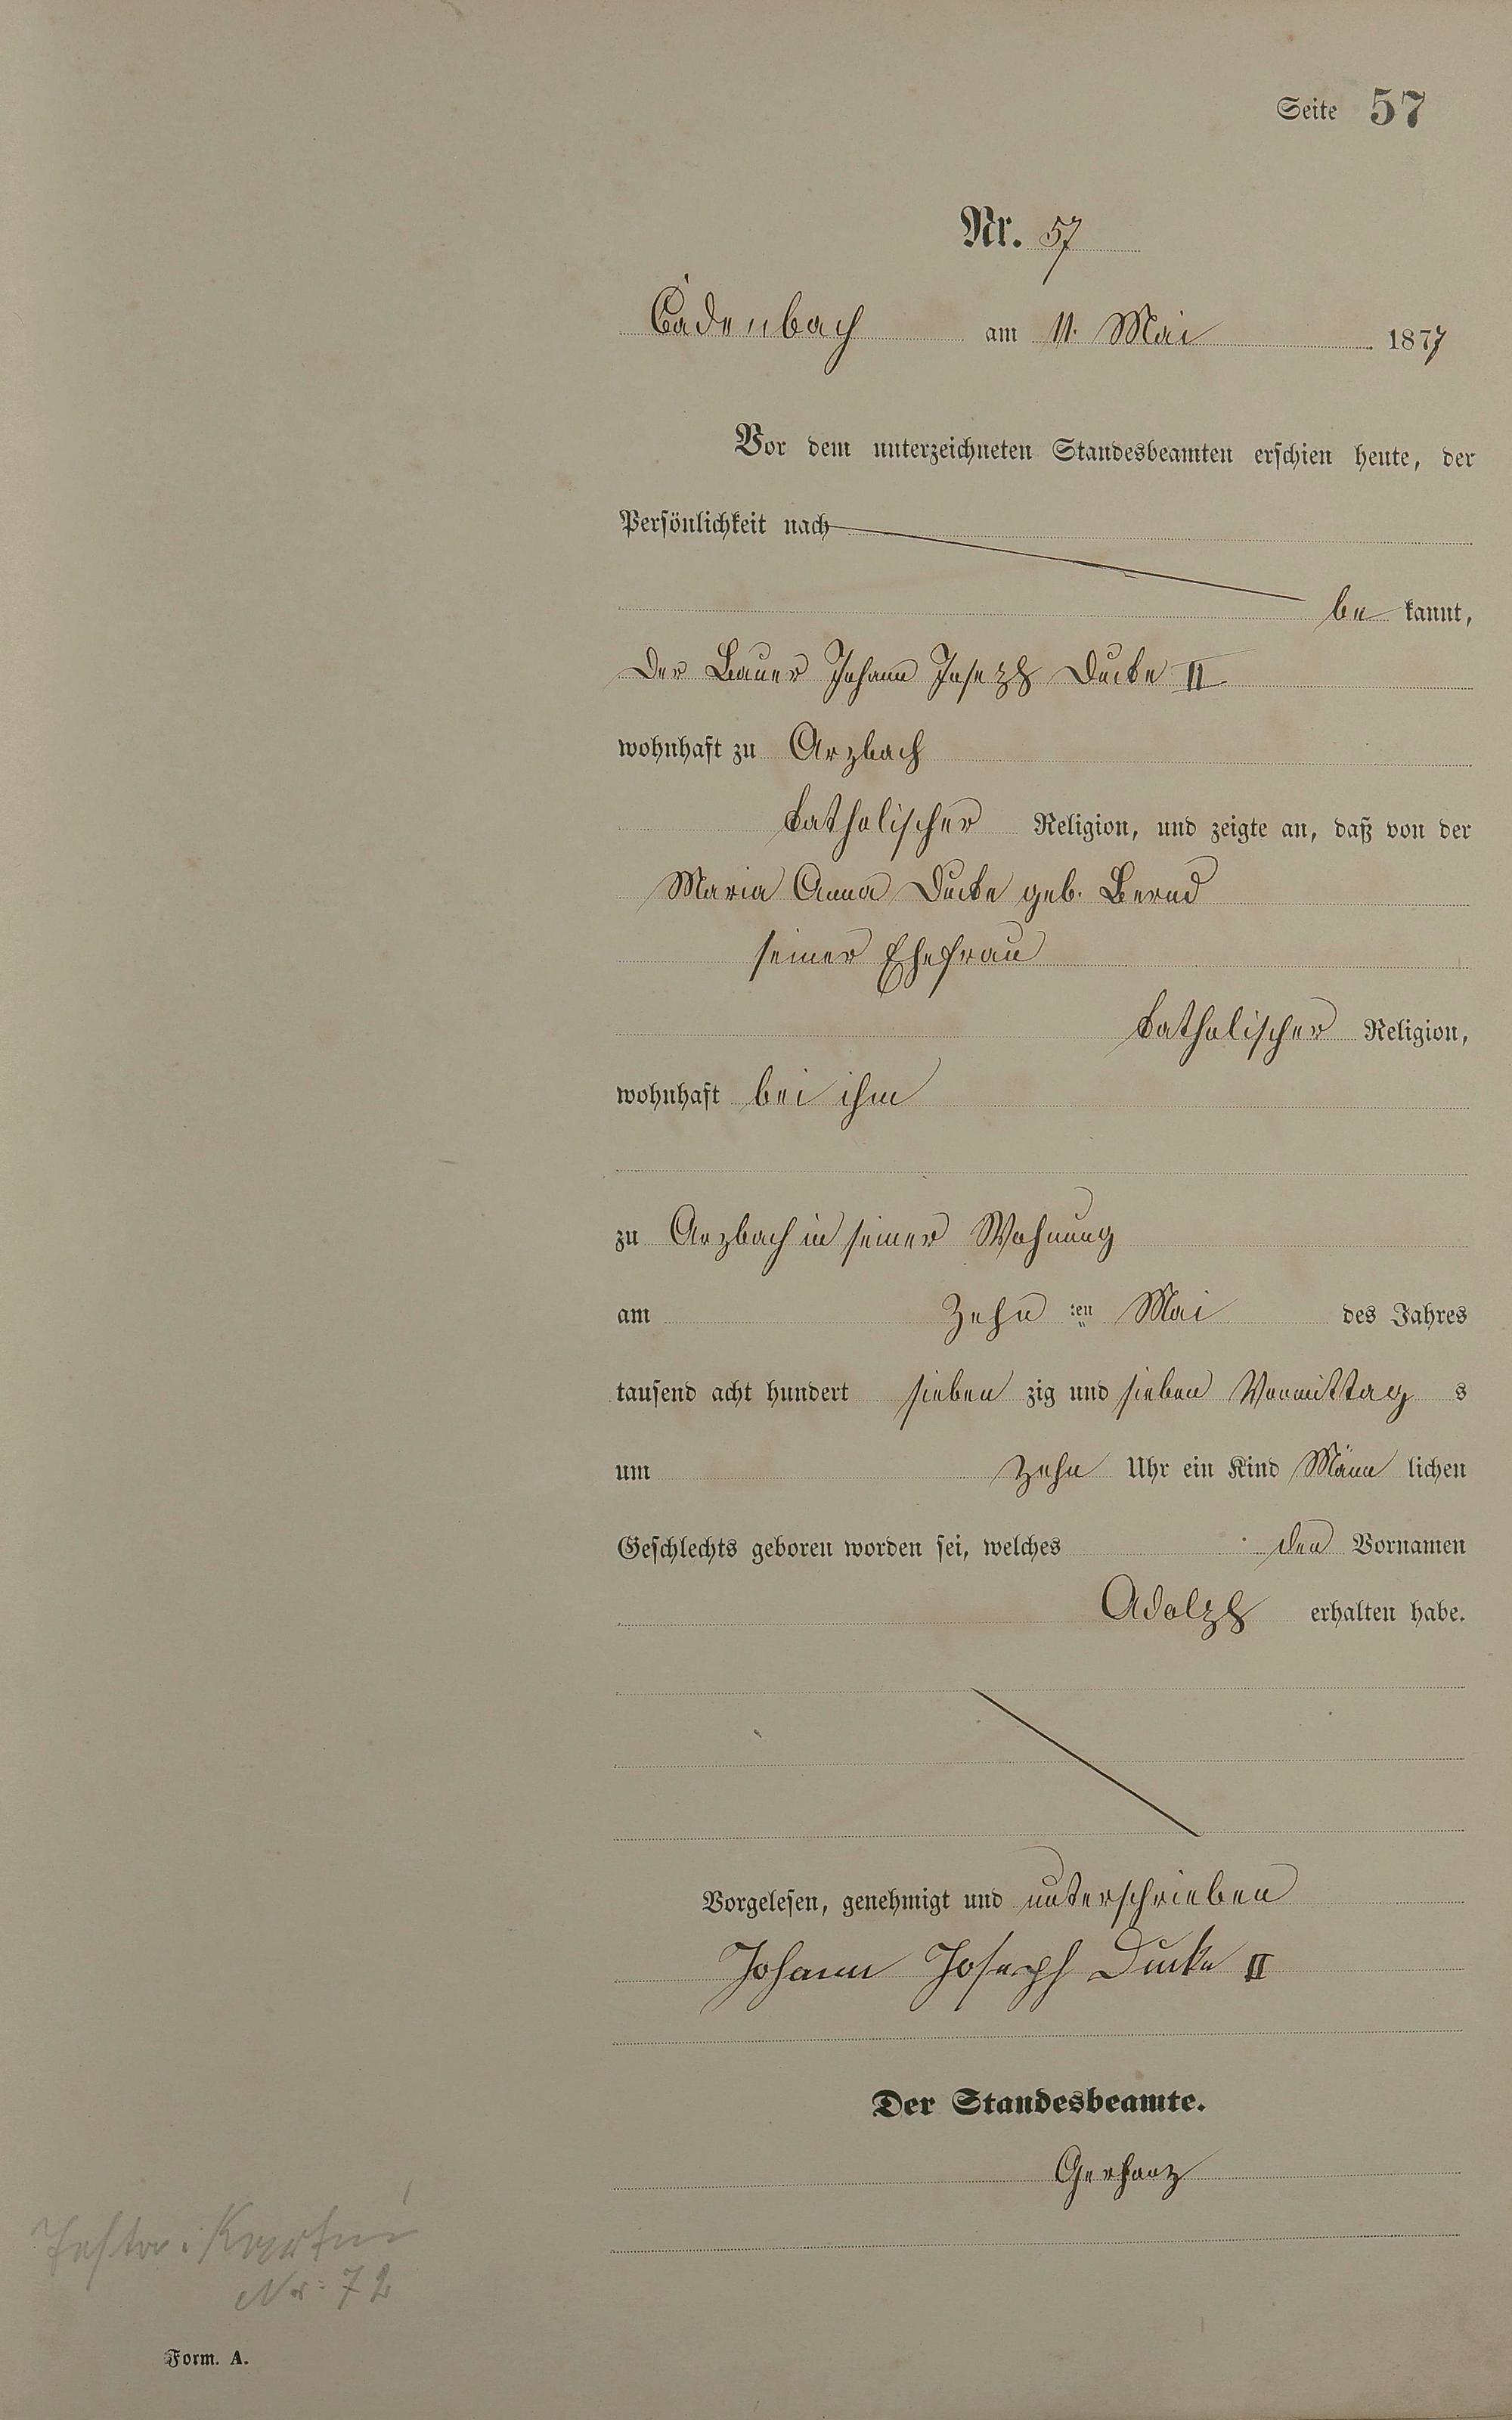 Seite 57
Nr. 57
Cadenbach am 11. Mai 1877
Vor dem unterzeichneten Standesbeamten erschien heute, der
Persönlichkeit nach
be kannt,
der Bauer Johann Joseph Ducke II
wohnhaft zu Arzbach
katholischer Religion, und zeigte an, daß von der
Maria Anna Ducke geb. Bernd
seiner Ehefrau
katholischer Religion,
wohnhaft bei ihm
zu Arzbach in seiner Wohnung
am zehn ten Mai des Jahres
tausend acht hundert sieben zig und sieben Vormittag s
um zehn Uhr ein Kind Männ lichen
Geschlechts geboren worden sei, welches den Vornamen
Adolph erhalten habe.
Vorgelesen, genehmigt und unterschrieben
Johann Joseph Ducke II
Der Standesbeamte.
Gerharz
Nr: 72
Form. A.